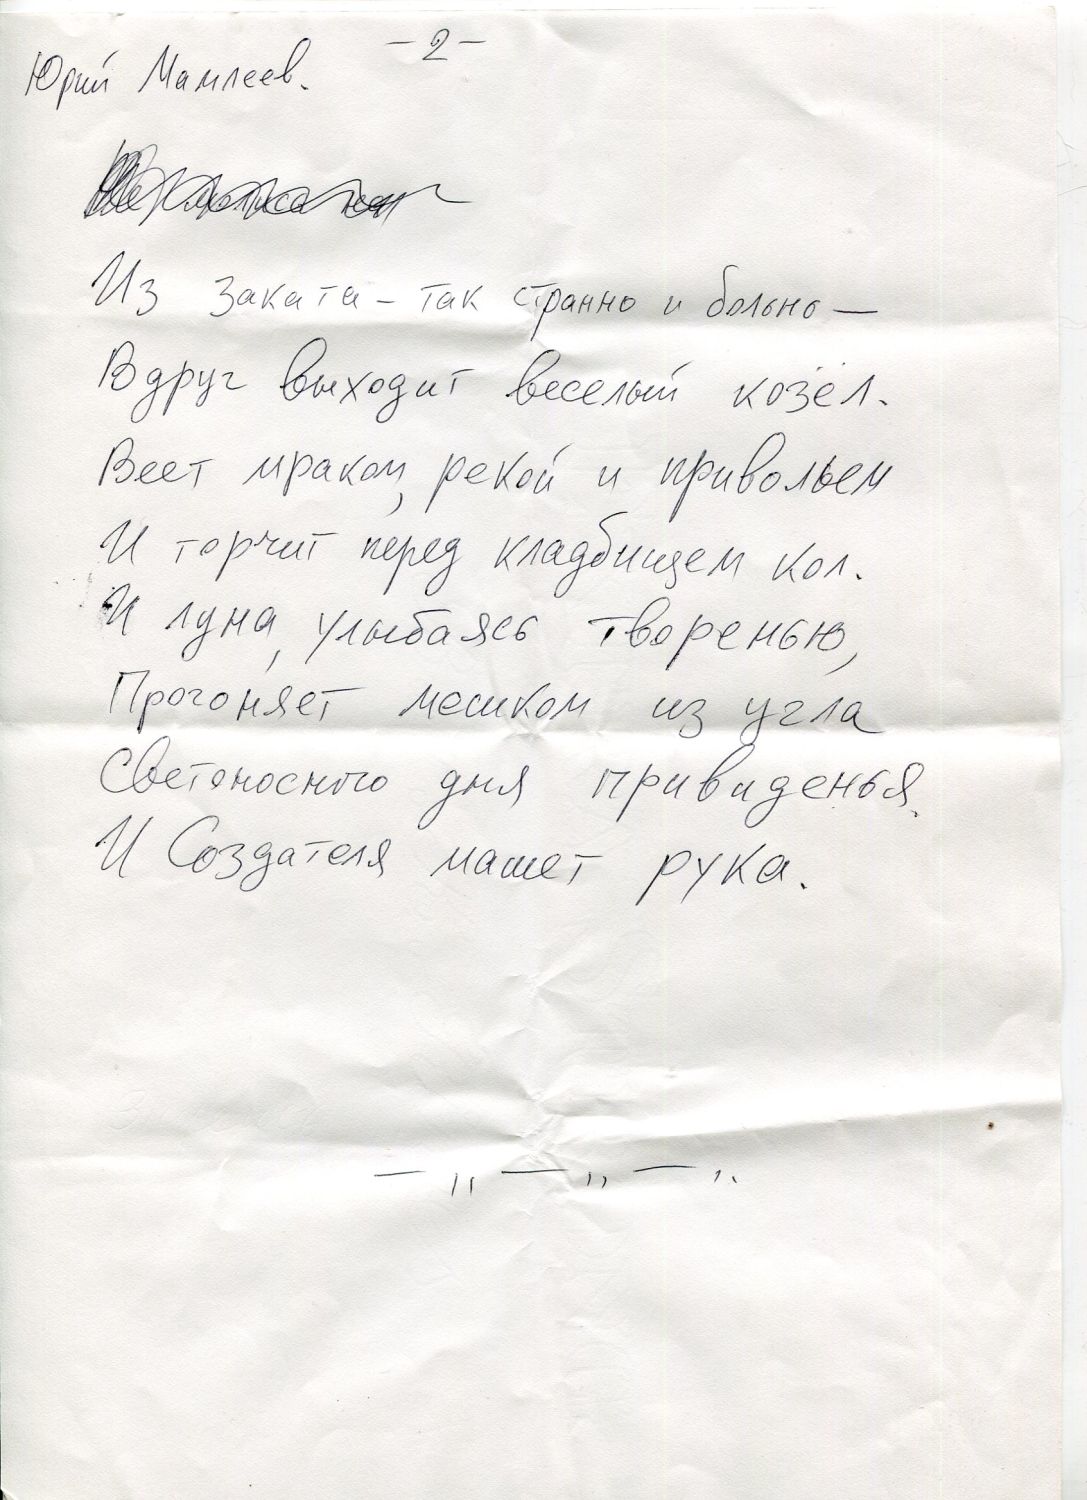 — 2 —
Юрий Мамлеев.
Из заката – так странно и больно —
Вдруг выходит веселый козёл.
Веет мраком, рекой и привольем
И торчит перед кладбищем кол.
И луна, улыбаясь творенью,
Прогоняет мешком из угла
Светоносного дня привиденья.
И Создателя машет рука.
— ,, — ,, — ,,